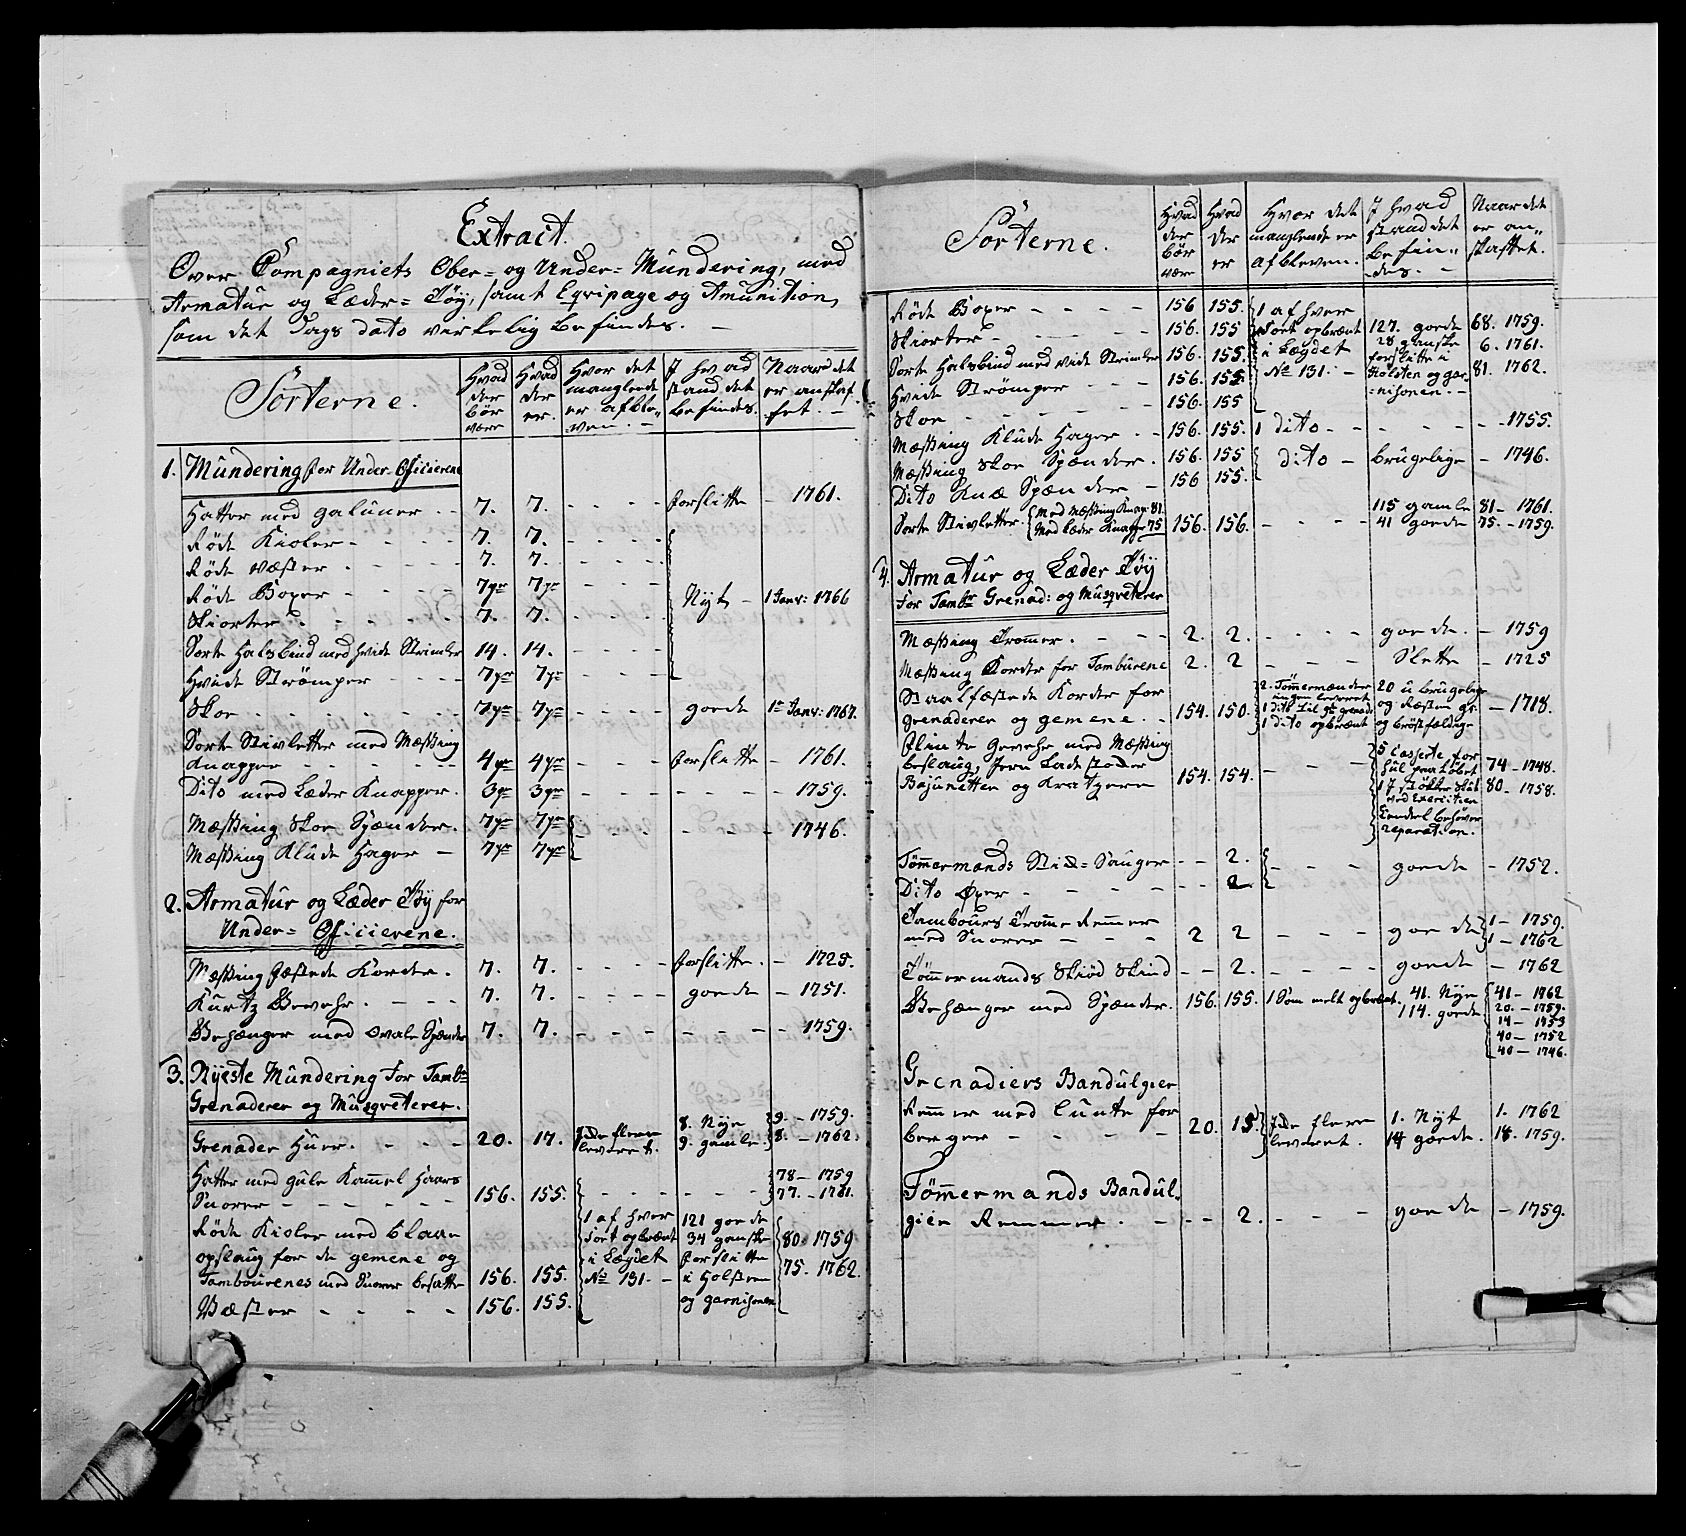 Extract.
Over Compagniets Ober- og Under- Mundering, med
Armatur og Læder- Tøy, samt Eqvipage og Amunition,
som det Dags dato virkelig befindes. —
Sorterne. Hvad der bør være Hvad der er. Hvor det manglende er afble- ven. — J hvad stand det befindes. Naar det er anskaf- fet. —
1. Mundering for Under-Oficierene
Hatter med galuner - - 7. 7. - - - - forslitte - 1761.
Røde Kioler - - - - 7. 7. - - - -
Røde væster - - - - - 7. 7. - - - -
Røde Boxer - - - - - 7pr 7pr - - - Nyt - 1 Janr: 1766
Skiorter - - - - - 7. 7. - - - -
Sorte Halsbind med hvide Strimler 14. 14. - - - -
Hvide Strømper - - - - 7pr 7pr - - - -
Skoe - - - - - - 7pr 7pr - - - - goede 1te Janr: 1767.
Sorte Stivletter med Mæssing
Knapper - - - - - - 4pr 4pr - - - forslitte - 1761.
Dito med Læder Knapper. 3pr 3pr - - - - - - - - 1759.
Mæssing Skoe Spænder. 7pr 7pr - - - - - - - 1746.
Mæssing Klude Hager - 7pr 7pr
2. Armatur og Læder Tøy for
Under- Oficierene.
Mæssing fæstede Korder. 7. 7. - - - - forslitte. - 1725.
Kurtz Gewehr. - - - 7. 7. - - - - goede - 1751.
Gehænger med ovale Spænder 7. 7. - - - - - - - 1759.
3. Nyeste Mundering for Tambr
Grenaderer og Musqveterer.
Grenader Huer. - - - 20. 17. Jide flere leveret. 8. Nye 9. gamle 9. - 1759. 8. - 1762.
Hatter med gule Kammel Haars
Snorer - - - - - 156. 155. - - - - - - 78 - 1759 77. - 1761.
Røde Kioler med blaae
opslaug for de gemene og
Tambourenes med Snorer besatte 156. 155. 1 af hver sort opbrænt i Lægdet No 131. - 121 goede 34 ganske forslitte i Holsteen og garnisonen 80. 1759 75. 1762.
Væster - - - - 156. 155.
Sorterne. Hvad der bør være Hvad der er Hvor det manglende er afbleven. J hvad stand det befin- des. - Naar det er an- skaffet.
Røde Boxer - - - - 156 155. 1 af hver sort opbrænt i Lægdet No 131. - 127. goede 28 ganske forslitte i Holsten og gar- nisonen. - 68. 1759. 6. 1761. 81. 1762.
Skiorter - - - - - 156. 155
Sorte Halsbind med vide Strimler 156. 155.
Hvide Strømper - - - 156. 155.
Skoe - - - - - - 156. 155
Mæssing Klude Hager - - 156. 155. 1 dito - - - - - - 1755.
Mæssing Skoe Spænder. 156. 155 dito - brugelige - 1746.
Dito Knæ Spænder - 156 155.
Sorte Stivletter. Med Mæssing Knap: 81. Med Læder Knapper 75 156. 156. - - - - 115 gamle 41 goede 81 - 1761. 75. - 1759.
4. Armatur og Læder Tøy
For Tambr Grenad: og Musqveterer
Mæssing Trommer. - - - 2. 2. - - - - goede. - 1759
Mæssing Korder for Tamburene 2. 2 - - - Slette - 1725
Staalfæstede Korder for
grenaderer og gemene. - 154. 150. 2. Tømmermænder ingen leveret 1 dito til gl: grenad: 1 dito opbrænt 20 u brugelige og Resten gl: og brøstfældige - 1718.
Flinte Gewehr med Mæssing
beslaug, Jern Ladestoder
Bajunetter og Kratzere 154. 154. - - - 5 Casserte for hul paa Løbet 17 støkker skudt ved Exercitien Eendeel behøver reparation. 74 - 1748. 80 - 1758.
Tømmermands Stix-Sauger - - 2. - - - goede - 1752.
Dito Øxer - - - - - - 2.
Tambours Tromme Remmer
med Snorer - - - 2 2 - - - goede 1 - 1759. 1 - 1762
Tømmermands Skiød Skind - - 2. - - - - goede - 1762
Gehænger med Spænder. 156. 155. 1 Som melt opbrænt. 41. Nye 114. goede 41 - 1762 20. - 1759. 14 - 1753 40 - 1752 40 - 1746.
Grenadiers Bandulgier
Remmer med Lunte for
berger - - - - 20. 15. Jide flere leveret. 1. Nyt 14 goede. 1. 1762 18. 1759.
Tømmermands Bandul-
gier Remmer. - - - 2. - - - goede - 1759.